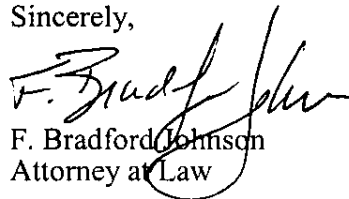 Sincerely,
F. Bradford Johnson
F. Bradford Johnson
Attorney at Law